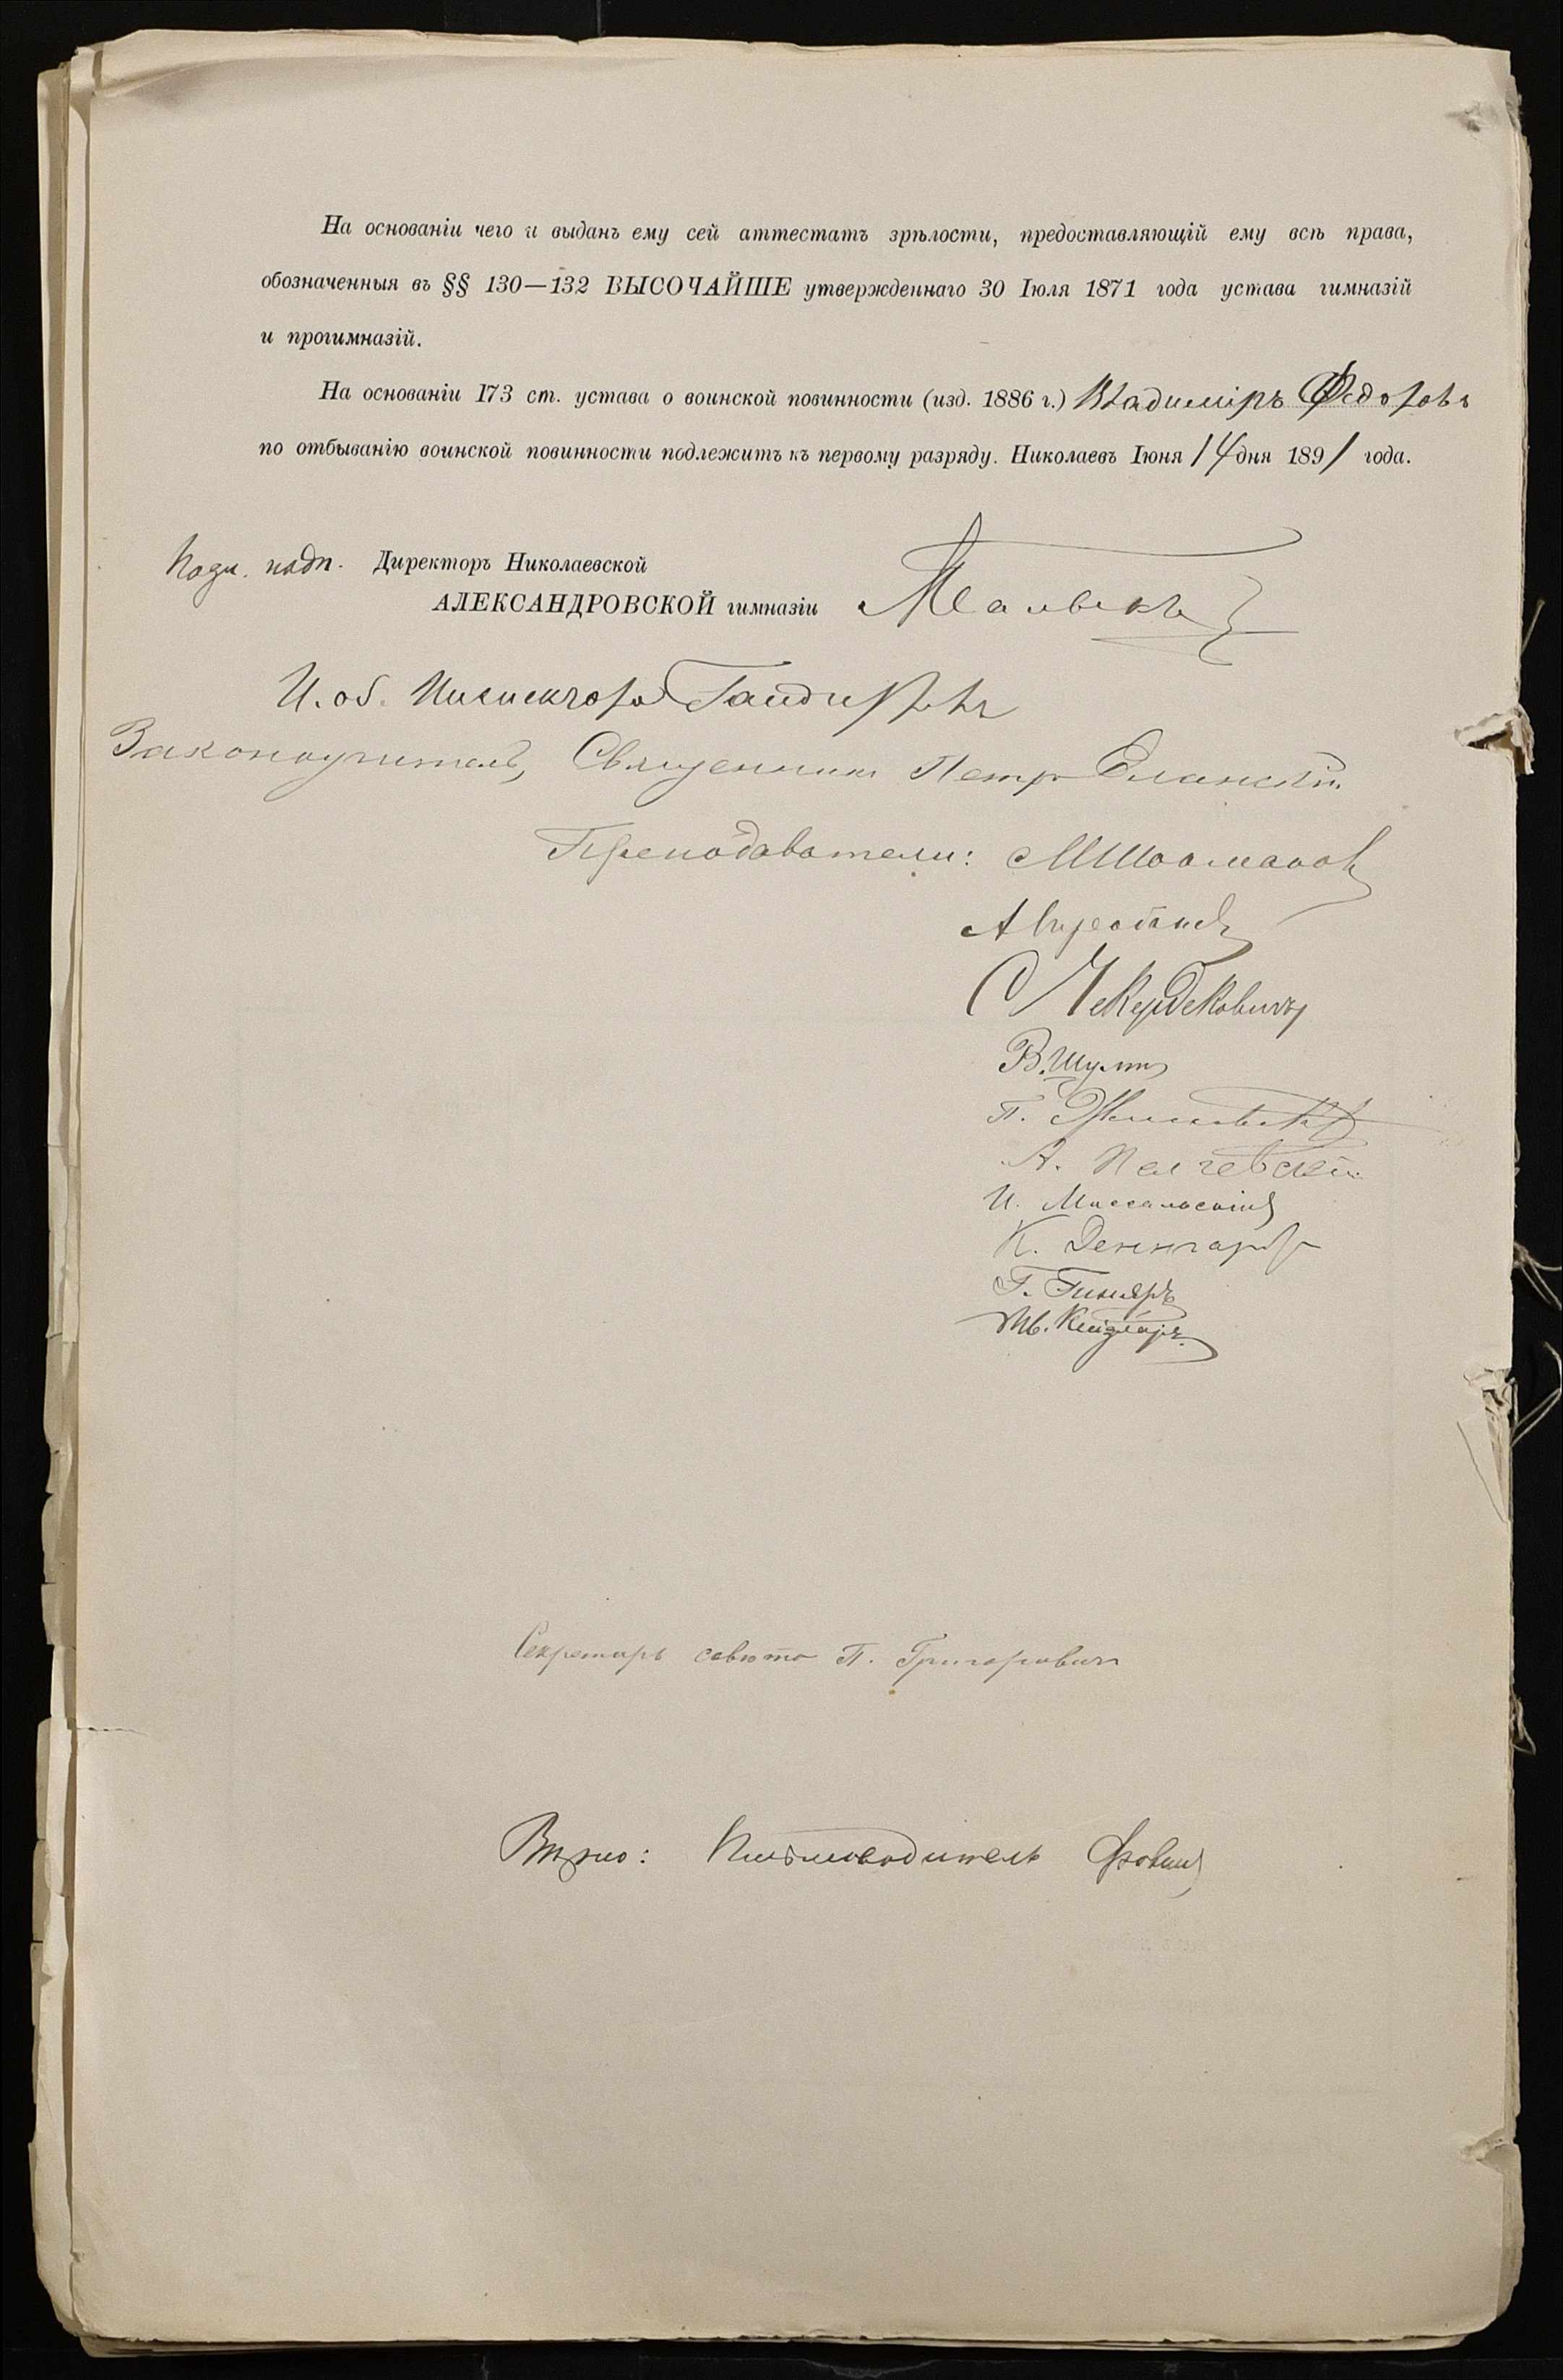 На основаніи чего и выданъ ему сей аттестатъ зрѣлости, предоставляющій ему всѣ права,
обозначенныя въ §§ 130—132 ВЫСОЧАЙШЕ утвержденнаго 30 Іюля 1871 года устава гимназій
и прогимназій.
На основаніи 173 ст. устава о воинской повинности (изд. 1886 г.) Владиміръ Федоровъ
по отбыванію воинской повинности подлежитъ къ первому разряду. Николаевъ Іюня 14 дня 1891 года.
подп. Директоръ Николаевской
АЛЕКСАНДРОВСКОЙ гимназіи
И. об. Инспектора
Законоучитель, Священникъ Петръ Еланскій
Преподаватели:
С Чекербековичъ
В. Шульц
П.
А.
И. Массальскій
К.
Г.
Секретарь совѣта П. Григоровичъ
Вѣрно: Письмоводитель